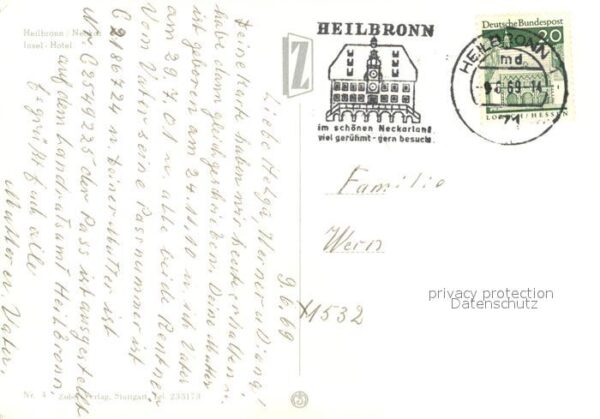 Heilbronn / Neckar
Insel-Hotel
HEILBRONN
im schönen Neckarland
viel gerühmt - gern besucht
HEILBRONN
md
-9.6.69-14
71
Deutsche Bundespost
20
LORSCH/HESSEN
9.6.69
Liebe Helga, Werner u Diana!
Deine Karte haben wir heute erhalten u.
habe dann gleich geschrieben. Deine Mutter
ist geboren am 24.11.10 u ich Vater
am 29.7.01 u alle beide Rentner
Vom Vater seine Passnummer ist
C 2186724 Deiner Mutter ist
Nr C 2574225 der Pass ist ausgestellt
auf dem Landratsamt Heilbronn.
Es grüßt Euch alle
Mutter u. Vater.
Familie
Wern
X1532
privacy protection
Datenschutz
Nr. 4 Zobel-Verlag, Stuttgart, Tel. 235173